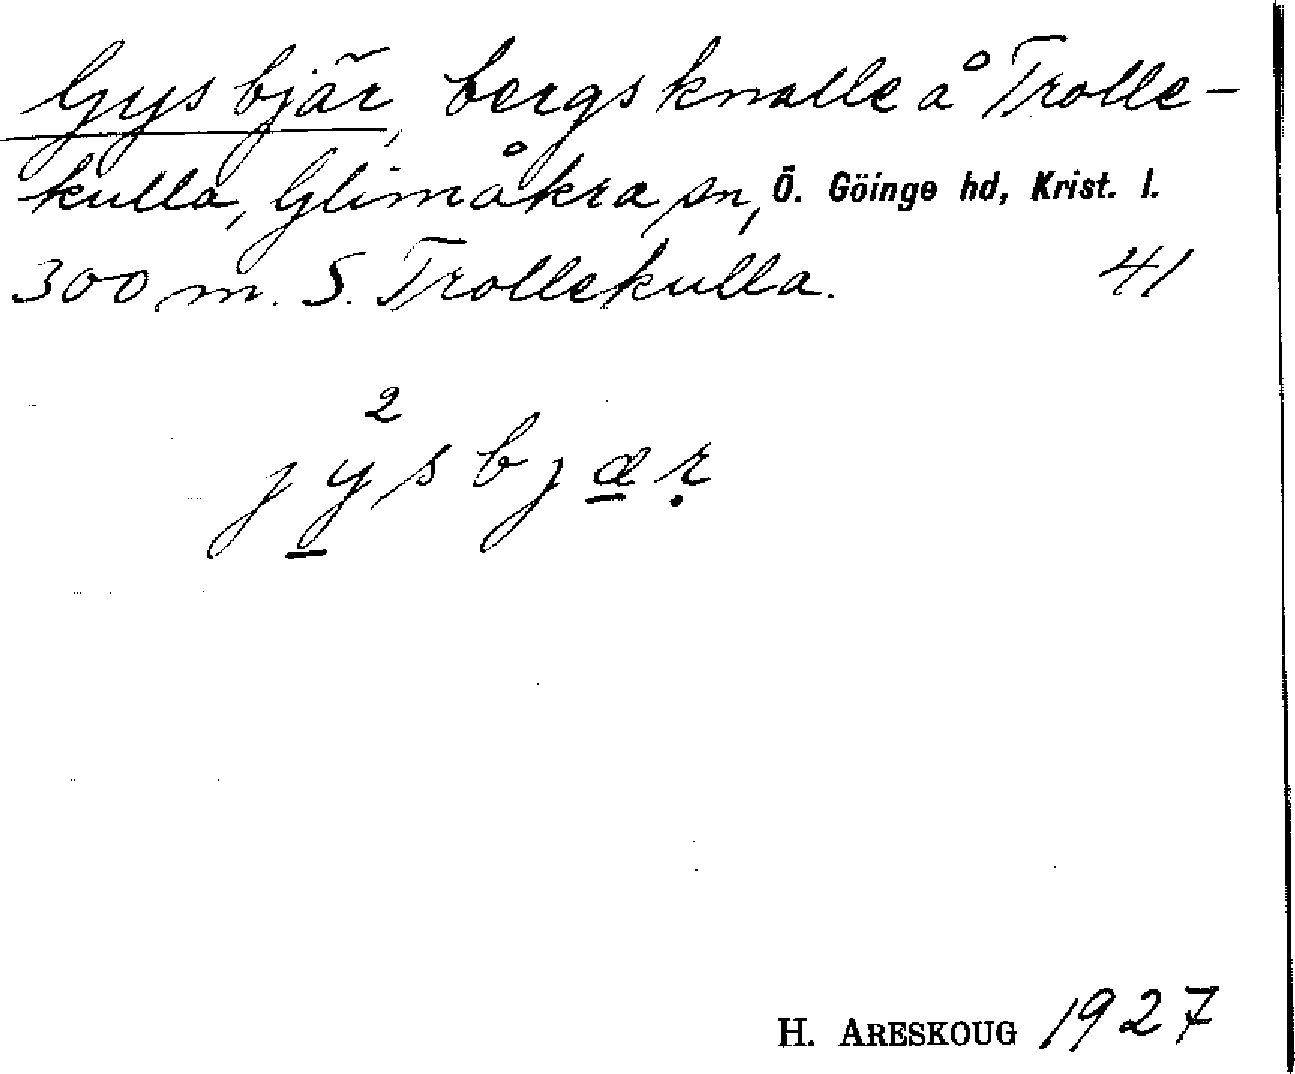 Gysbjär, bergsknalle å Trolle-
kulla, Glimåkra sn, Ö. Göinge hd, Krist. l.
300 m. S. Trollekulla. 41
2
jysbjær
H. ARESKOUG 1927